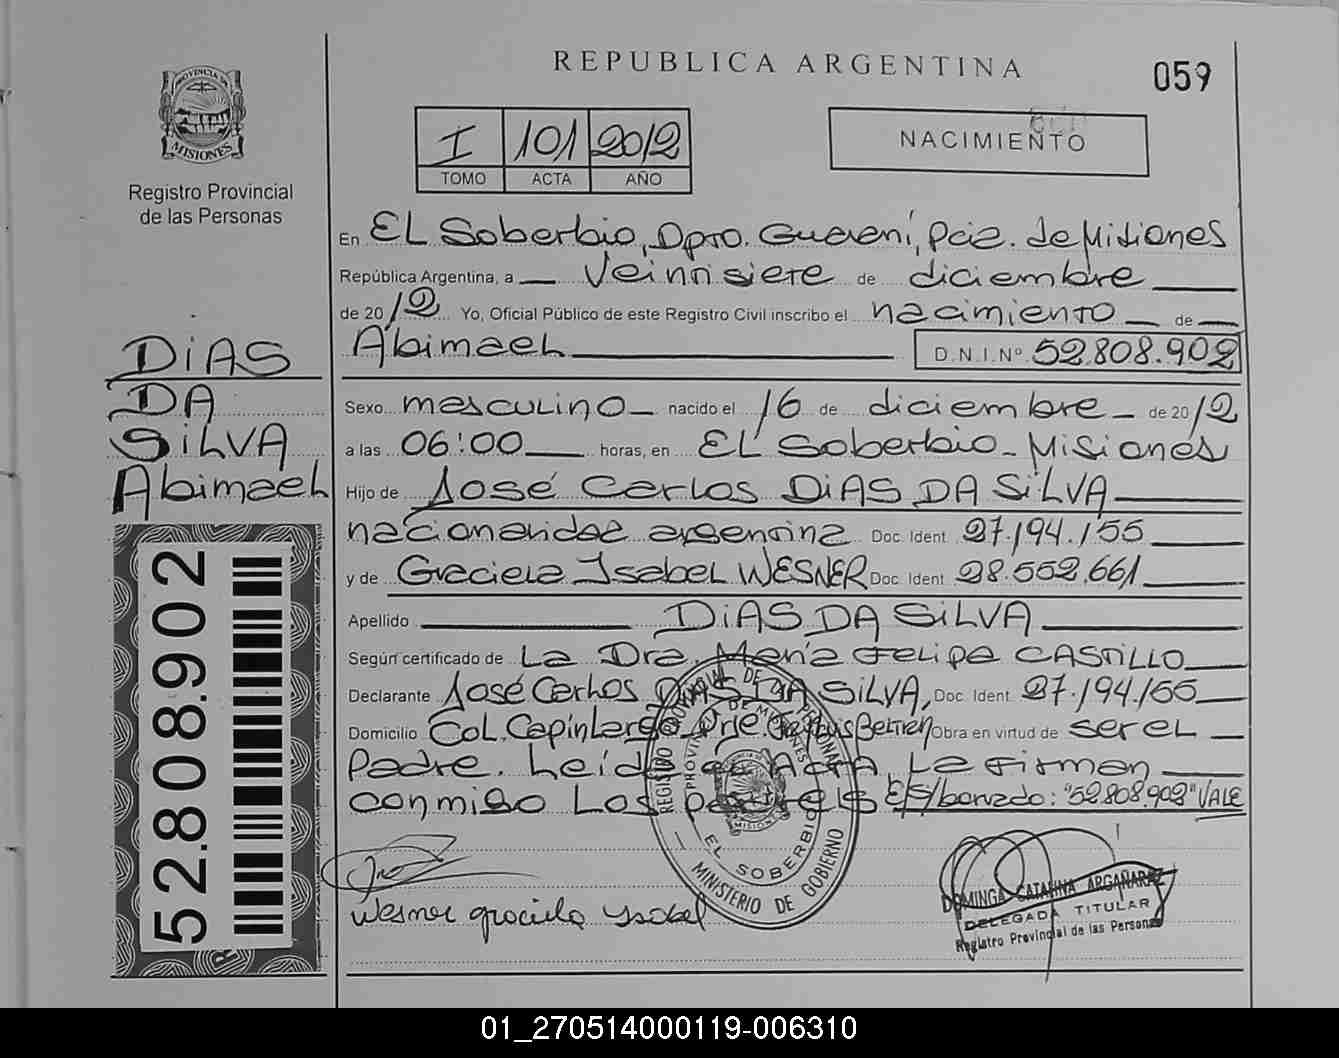 REPUBLICA ARGENTINA
059
PROVINCIA DE
MISIONES
Registro Provincial
de las Personas
I 101 2012
TOMO ACTA AÑO
NACIMIENTO
En EL Soberbio, Dpto. Guaraní, Pcia. de Misiones
República Argentina, a Veintisiete de diciembre
de 2012 Yo, Oficial Público de este Registro Civil inscribo el nacimiento de
Abimael D.N.I.Nº 52.808.902
Sexo masculino nacido el 16 de diciembre de 2012
a las 06:00 horas, en EL Soberbio - Misiones
Hijo de José Carlos DIAS DA SILVA
nacionalidad argentina Doc. Ident. 27.194.155
y de Graciela Isabel WESNER Doc. Ident. 28.552.661
Apellido DIAS DA SILVA
Según certificado de La Dra. María Felipa CASTILLO
Declarante José Carlos DIAS DA SILVA, Doc. Ident. 27.194.155
Domicilio Col. Capin Largo Luis Beltran Obra en virtud de ser el
Padre. Leída el Acta, La firman
conmigo Los padres E/S/borrado: "52.808.902" VALE
DIAS
DA
SILVA
Abimael
52.808.902
Wesner graciela Ysabel
REGISTRO PROVINCIAL DE LAS PERSONAS
PROVINCIA DE MISIONES
MISIONES
EL SOBERBIO
MINISTERIO DE GOBIERNO
DOMINGA CATALINA ARGAÑARAZ
DELEGADA TITULAR
Registro Provincial de las Personas
01_270514000119-006310